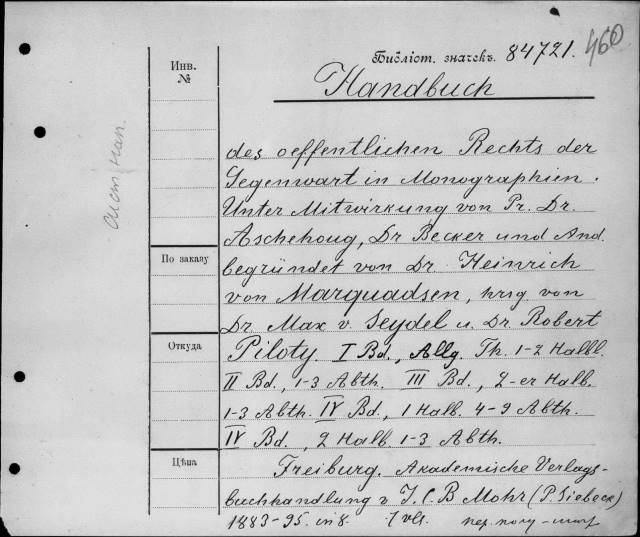 460
Библіот. значекъ. 84721.
Инв.
№
Handbuch
des oeffentlichen Rechts der
Gegenwart in Monographien.
Unter Mitwirkung von Pr. Dr.
Aschehoug, Dr Becker und And.
По заказу
begründet von Dr. Heinrich
von Marquadsen, hrsg. von
Dr. Max v. Seydel u. Dr. Robert
Откуда
Piloty. I Bd., Allg. Th. 1-2 Halbl.
II Bd., 1-3 Abth. III Bd., 2-er Halb.
1-3 Abth. IV Bd., 1 Halb. 4-9 Abth.
IV Bd., 2 Halb. 1-3 Abth.
Цѣна
Freiburg. Akademische Verlags-
buchhandlung v. J. C. B Mohr (P. Siebeck)
1883-95. in 8. 7 vls.